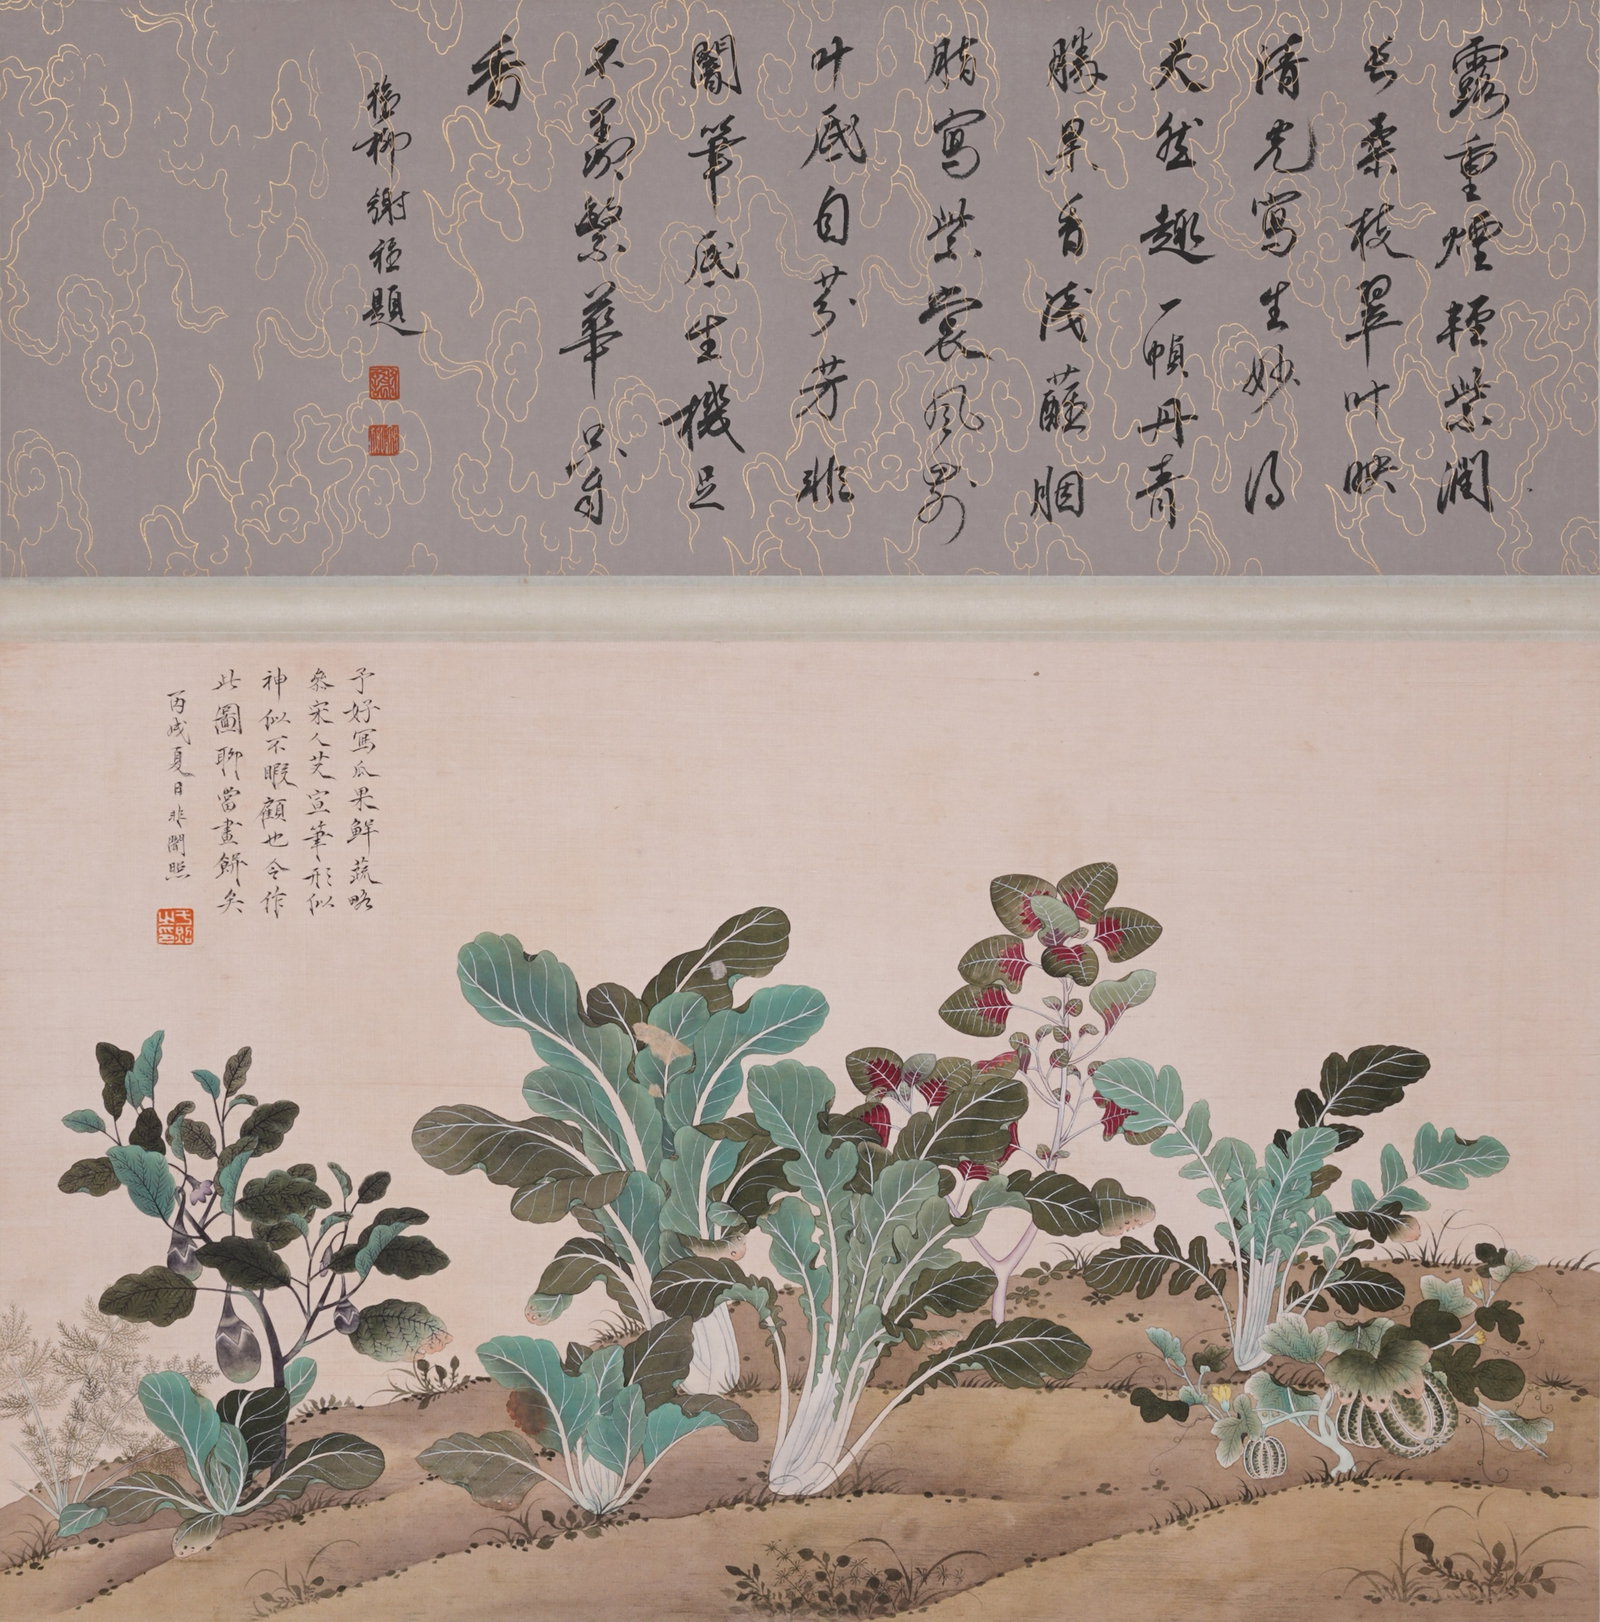 露重煙輕紫潤
長桑枝翠叶映
清光寫生妙得
天然趣一幀丹青
勝果香淺蘸胭
脂寫紫裳風翻
叶底自芬芳非
闇筆底生機足
不羨繁華只留
香
稚柳謝稚題
予好寫瓜果鮮蔬略
參宋人艾宣筆形似
神似不暇顧也今作
此圖聊當畫餅矣
丙戌夏日非闇照
于照之印